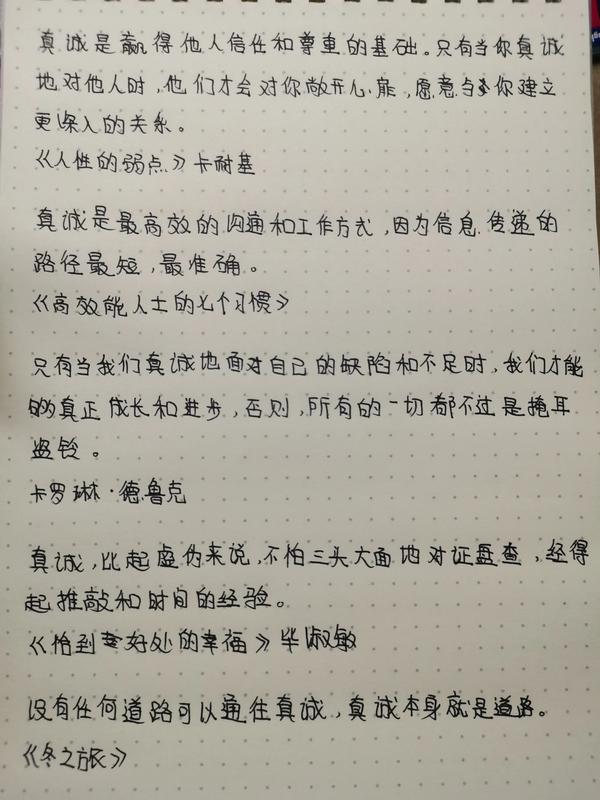 真诚是赢得他人信任和尊重的基础。只有当你真诚
地对他人时,他们才会对你敞开心扉,愿意与你建立
更深入的关系。
《人性的弱点》卡耐基
真诚是最高效的沟通和工作方式,因为信息传递的
路径最短,最准确。
《高效能人士的七个习惯》
只有当我们真诚地面对自己的缺陷和不足时,我们才能
够真正成长和进步,否则,所有的一切都不过是掩耳
盗铃。
卡罗琳·德鲁克
真诚,比起虚伪来说,不怕三头大面地对证盘查,经得
起推敲和时间的经验。
《恰到好处的幸福》毕淑敏
没有任何道路可以通往真诚,真诚本身就是道路。
《冬之旅》